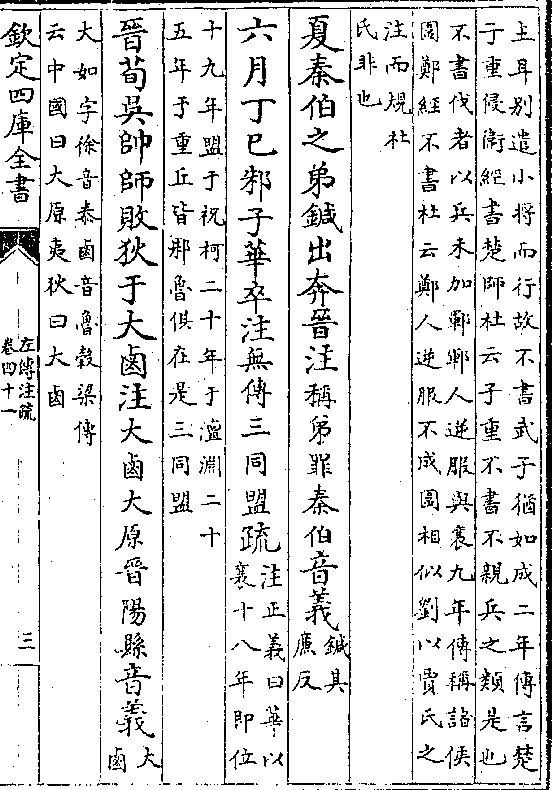 主耳别遣小將而行故不書武子猶如成二年傳言楚
子重侵衛經書楚師杜云子重不書不親兵之類是也
不書伐者以兵未加鄆鄆人逆服與襄九年傳稱諸侯
圍鄭經不書杜云鄭人逆服不成圍相似劉以賈氏之
注而規杜
氏非也
夏秦伯之弟鍼出奔晉注稱弟罪秦伯音義鍼其
廉反
六月丁巳邾子華卒注無傳三同盟疏注正義曰華以
襄十八年即位
十九年盟于祝柯二十年于澶淵二十
五年于重丘皆邾魯俱在是三同盟
晉荀吳帥師敗狄于大鹵注大鹵大原晉陽縣音義大
鹵
大如字徐音泰鹵音魯穀梁傳
云中國曰大原夷狄曰大鹵
欽定四庫全書
左傳注疏
卷四十一
三